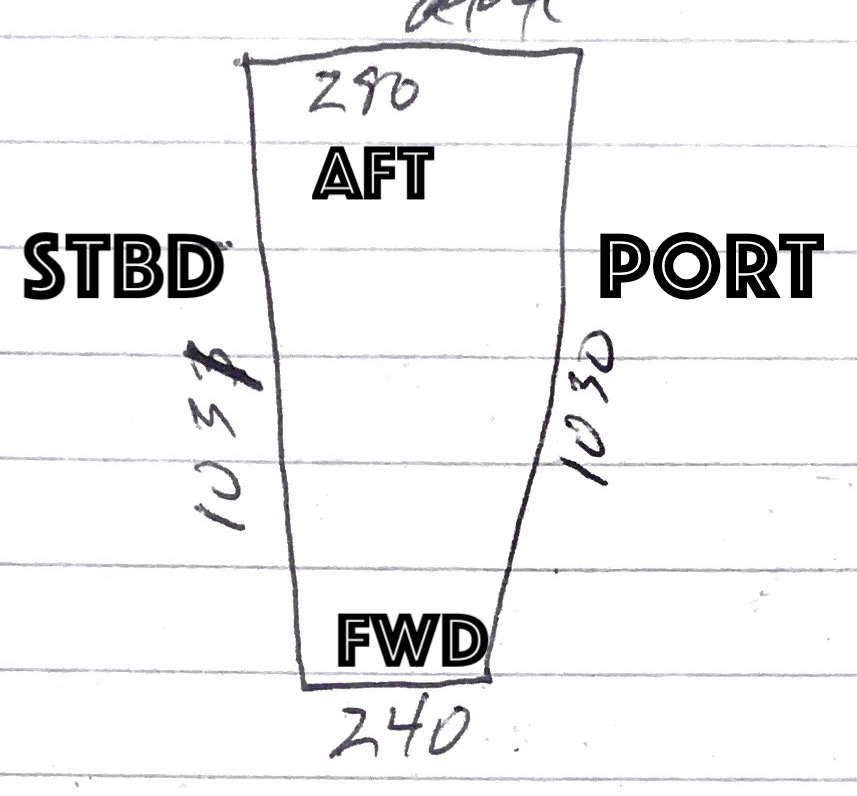 280
AFT
STBD
PORT
1030
FWD
240